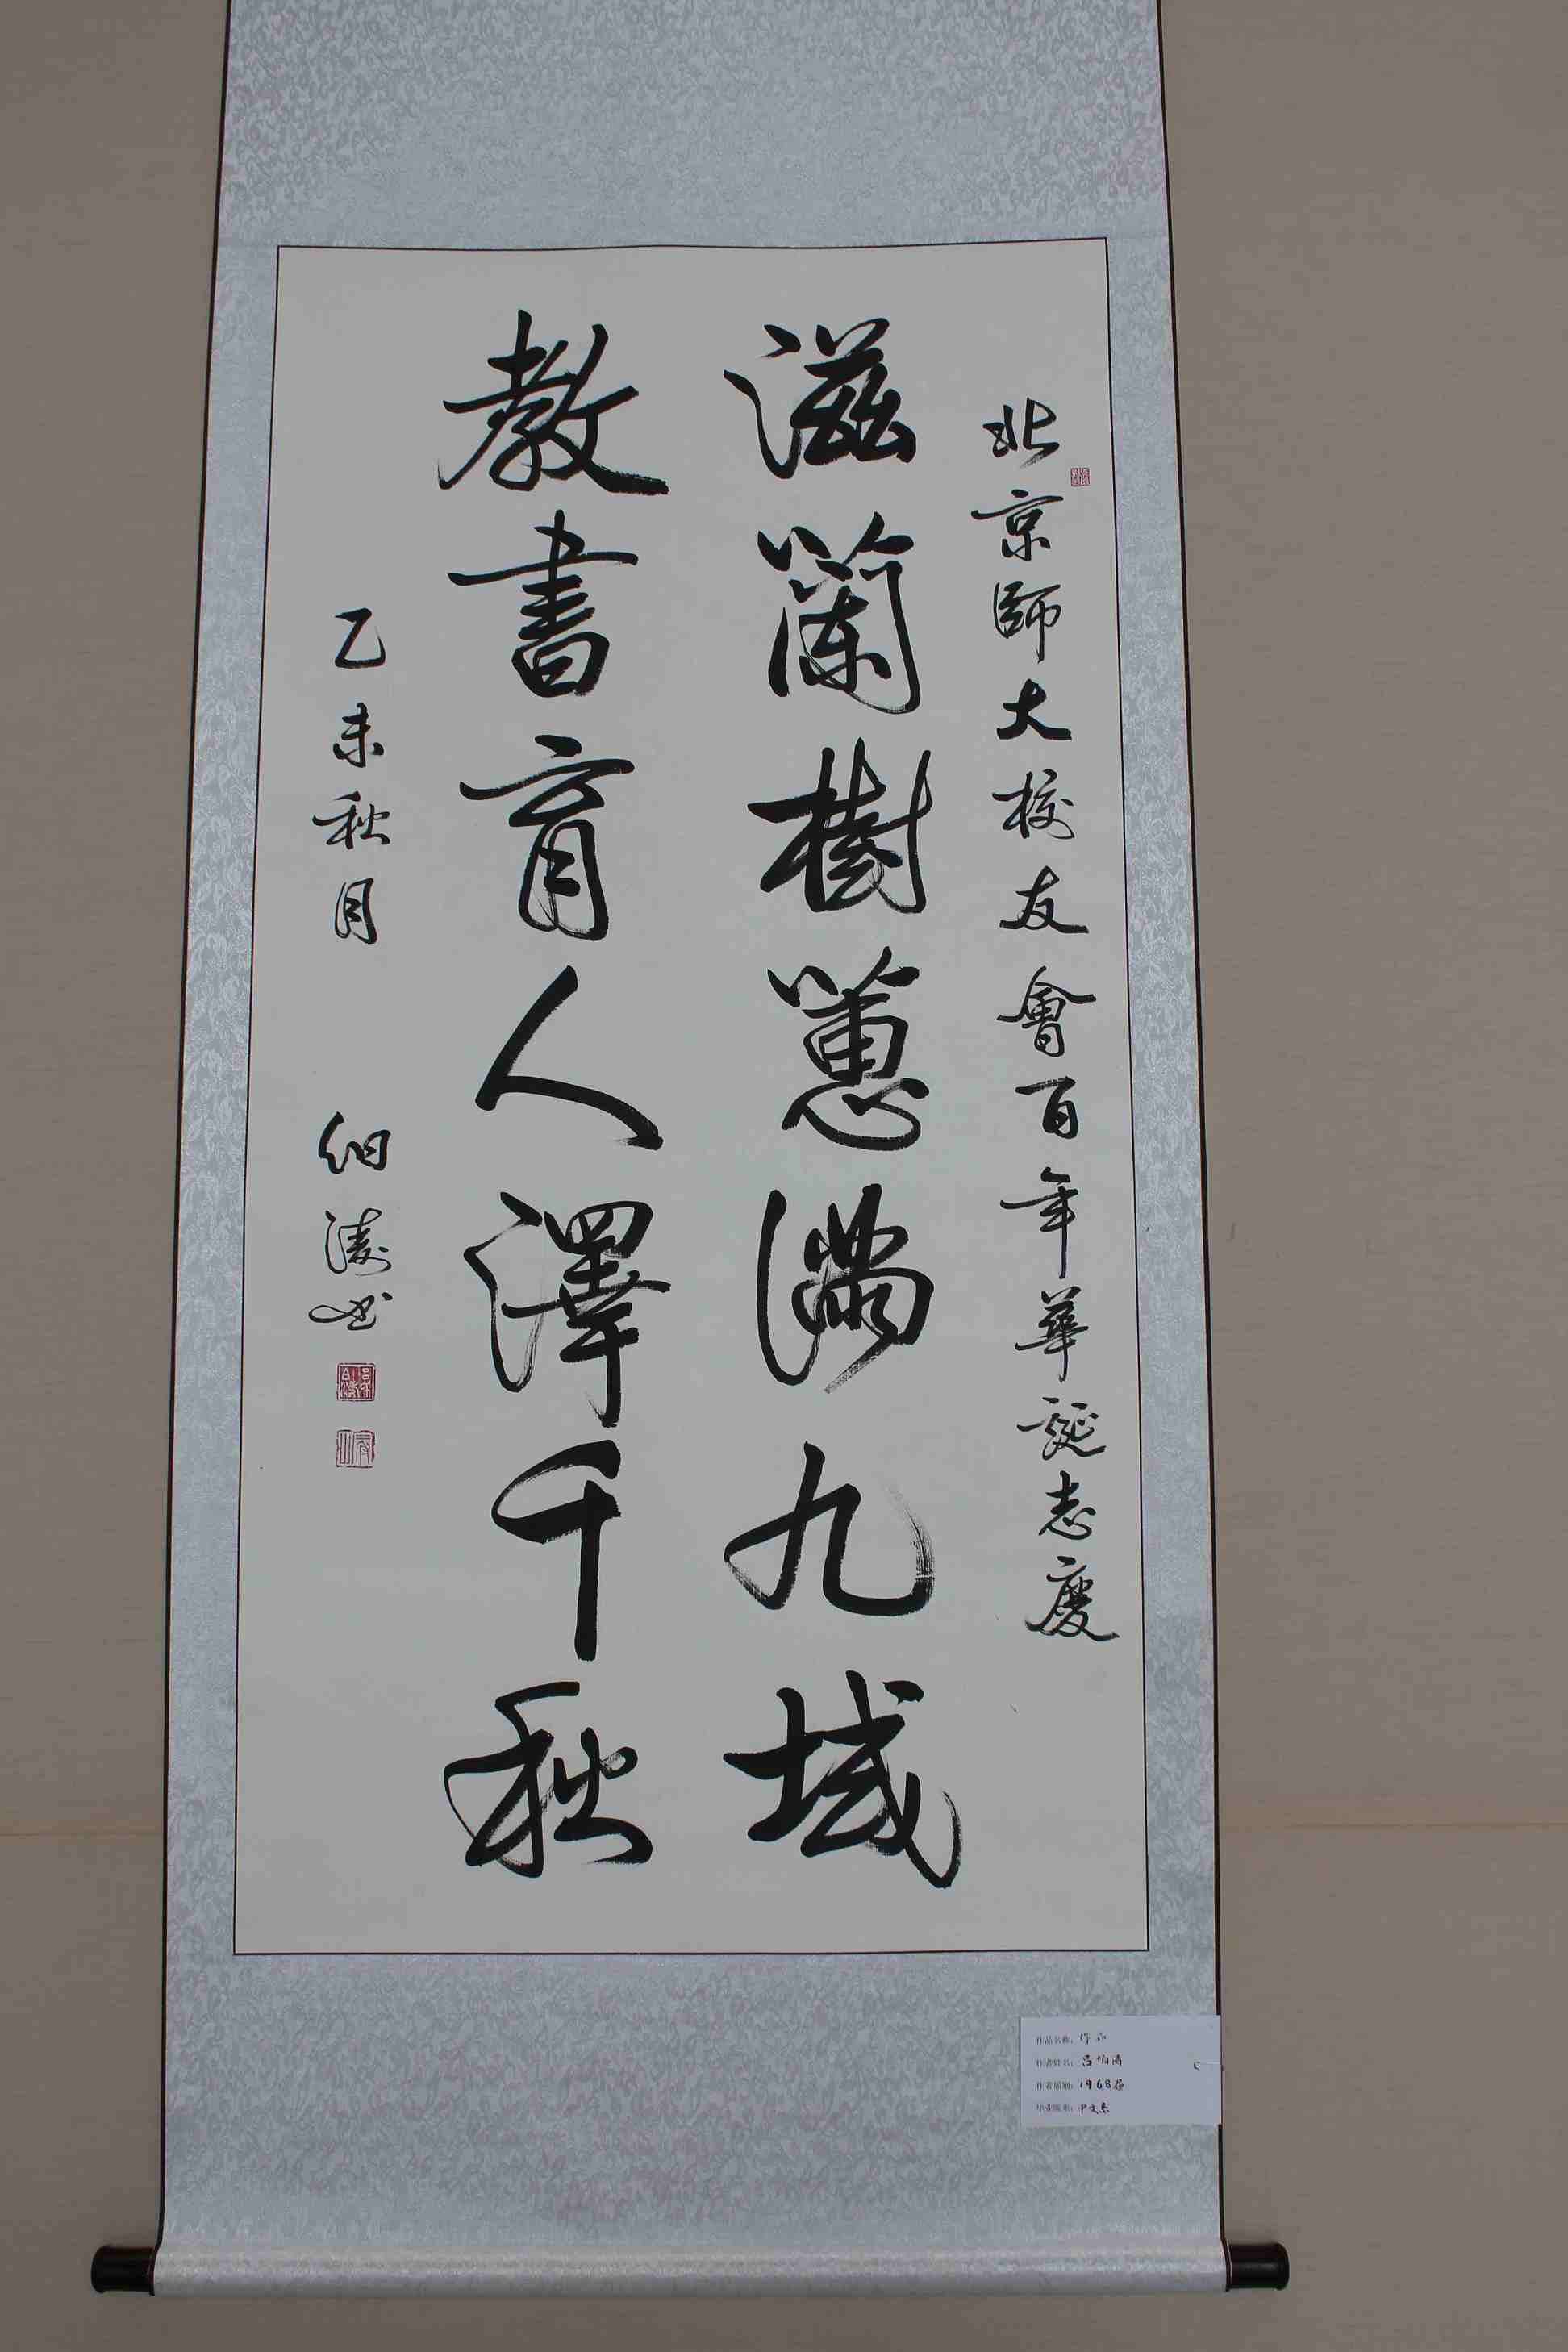 北京師大校友會百年華誕志慶
滋蘭樹蕙滿九域
教書育人澤千秋
乙未秋月 伯濤書
作品名称：作品
作者姓名：吕伯涛
作者届别：1968届
毕业院系：中文系